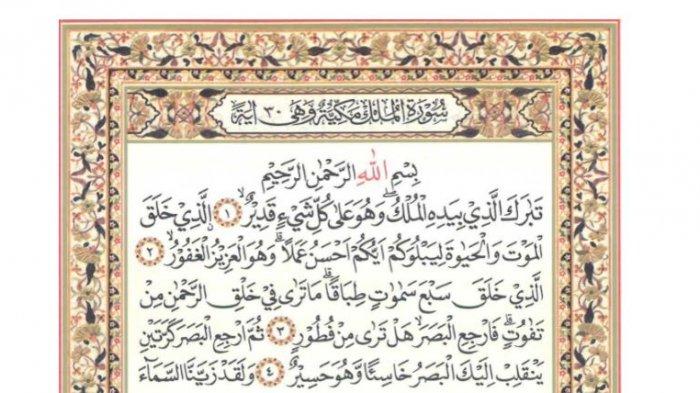 سُورَةُ الْمُلْكِ مَكِّيَّةٌ وَهِيَ ٣٠ اٰيَةً
بِسْمِ اللّٰهِ الرَّحْمٰنِ الرَّحِيْمِ
تَبٰرَكَ الَّذِيْ بِيَدِهِ الْمُلْكُۖ وَهُوَ عَلٰى كُلِّ شَيْءٍ قَدِيْرٌۙ ١ اَلَّذِيْ خَلَقَ
الْمَوْتَ وَالْحَيٰوةَ لِيَبْلُوَكُمْ اَيُّكُمْ اَحْسَنُ عَمَلًاۗ وَهُوَ الْعَزِيْزُ الْغَفُوْرُۙ ٢
الَّذِيْ خَلَقَ سَبْعَ سَمٰوٰتٍ طِبَاقًاۗ مَا تَرٰى فِيْ خَلْقِ الرَّحْمٰنِ مِنْ
تَفٰوُتٍۗ فَارْجِعِ الْبَصَرَۙ هَلْ تَرٰى مِنْ فُطُوْرٍ ٣ ثُمَّ ارْجِعِ الْبَصَرَ كَرَّتَيْنِ
يَنْقَلِبْ اِلَيْكَ الْبَصَرُ خَاسِئًا وَّهُوَ حَسِيْرٌ ٤ وَلَقَدْ زَيَّنَّا السَّمَاۤءَ